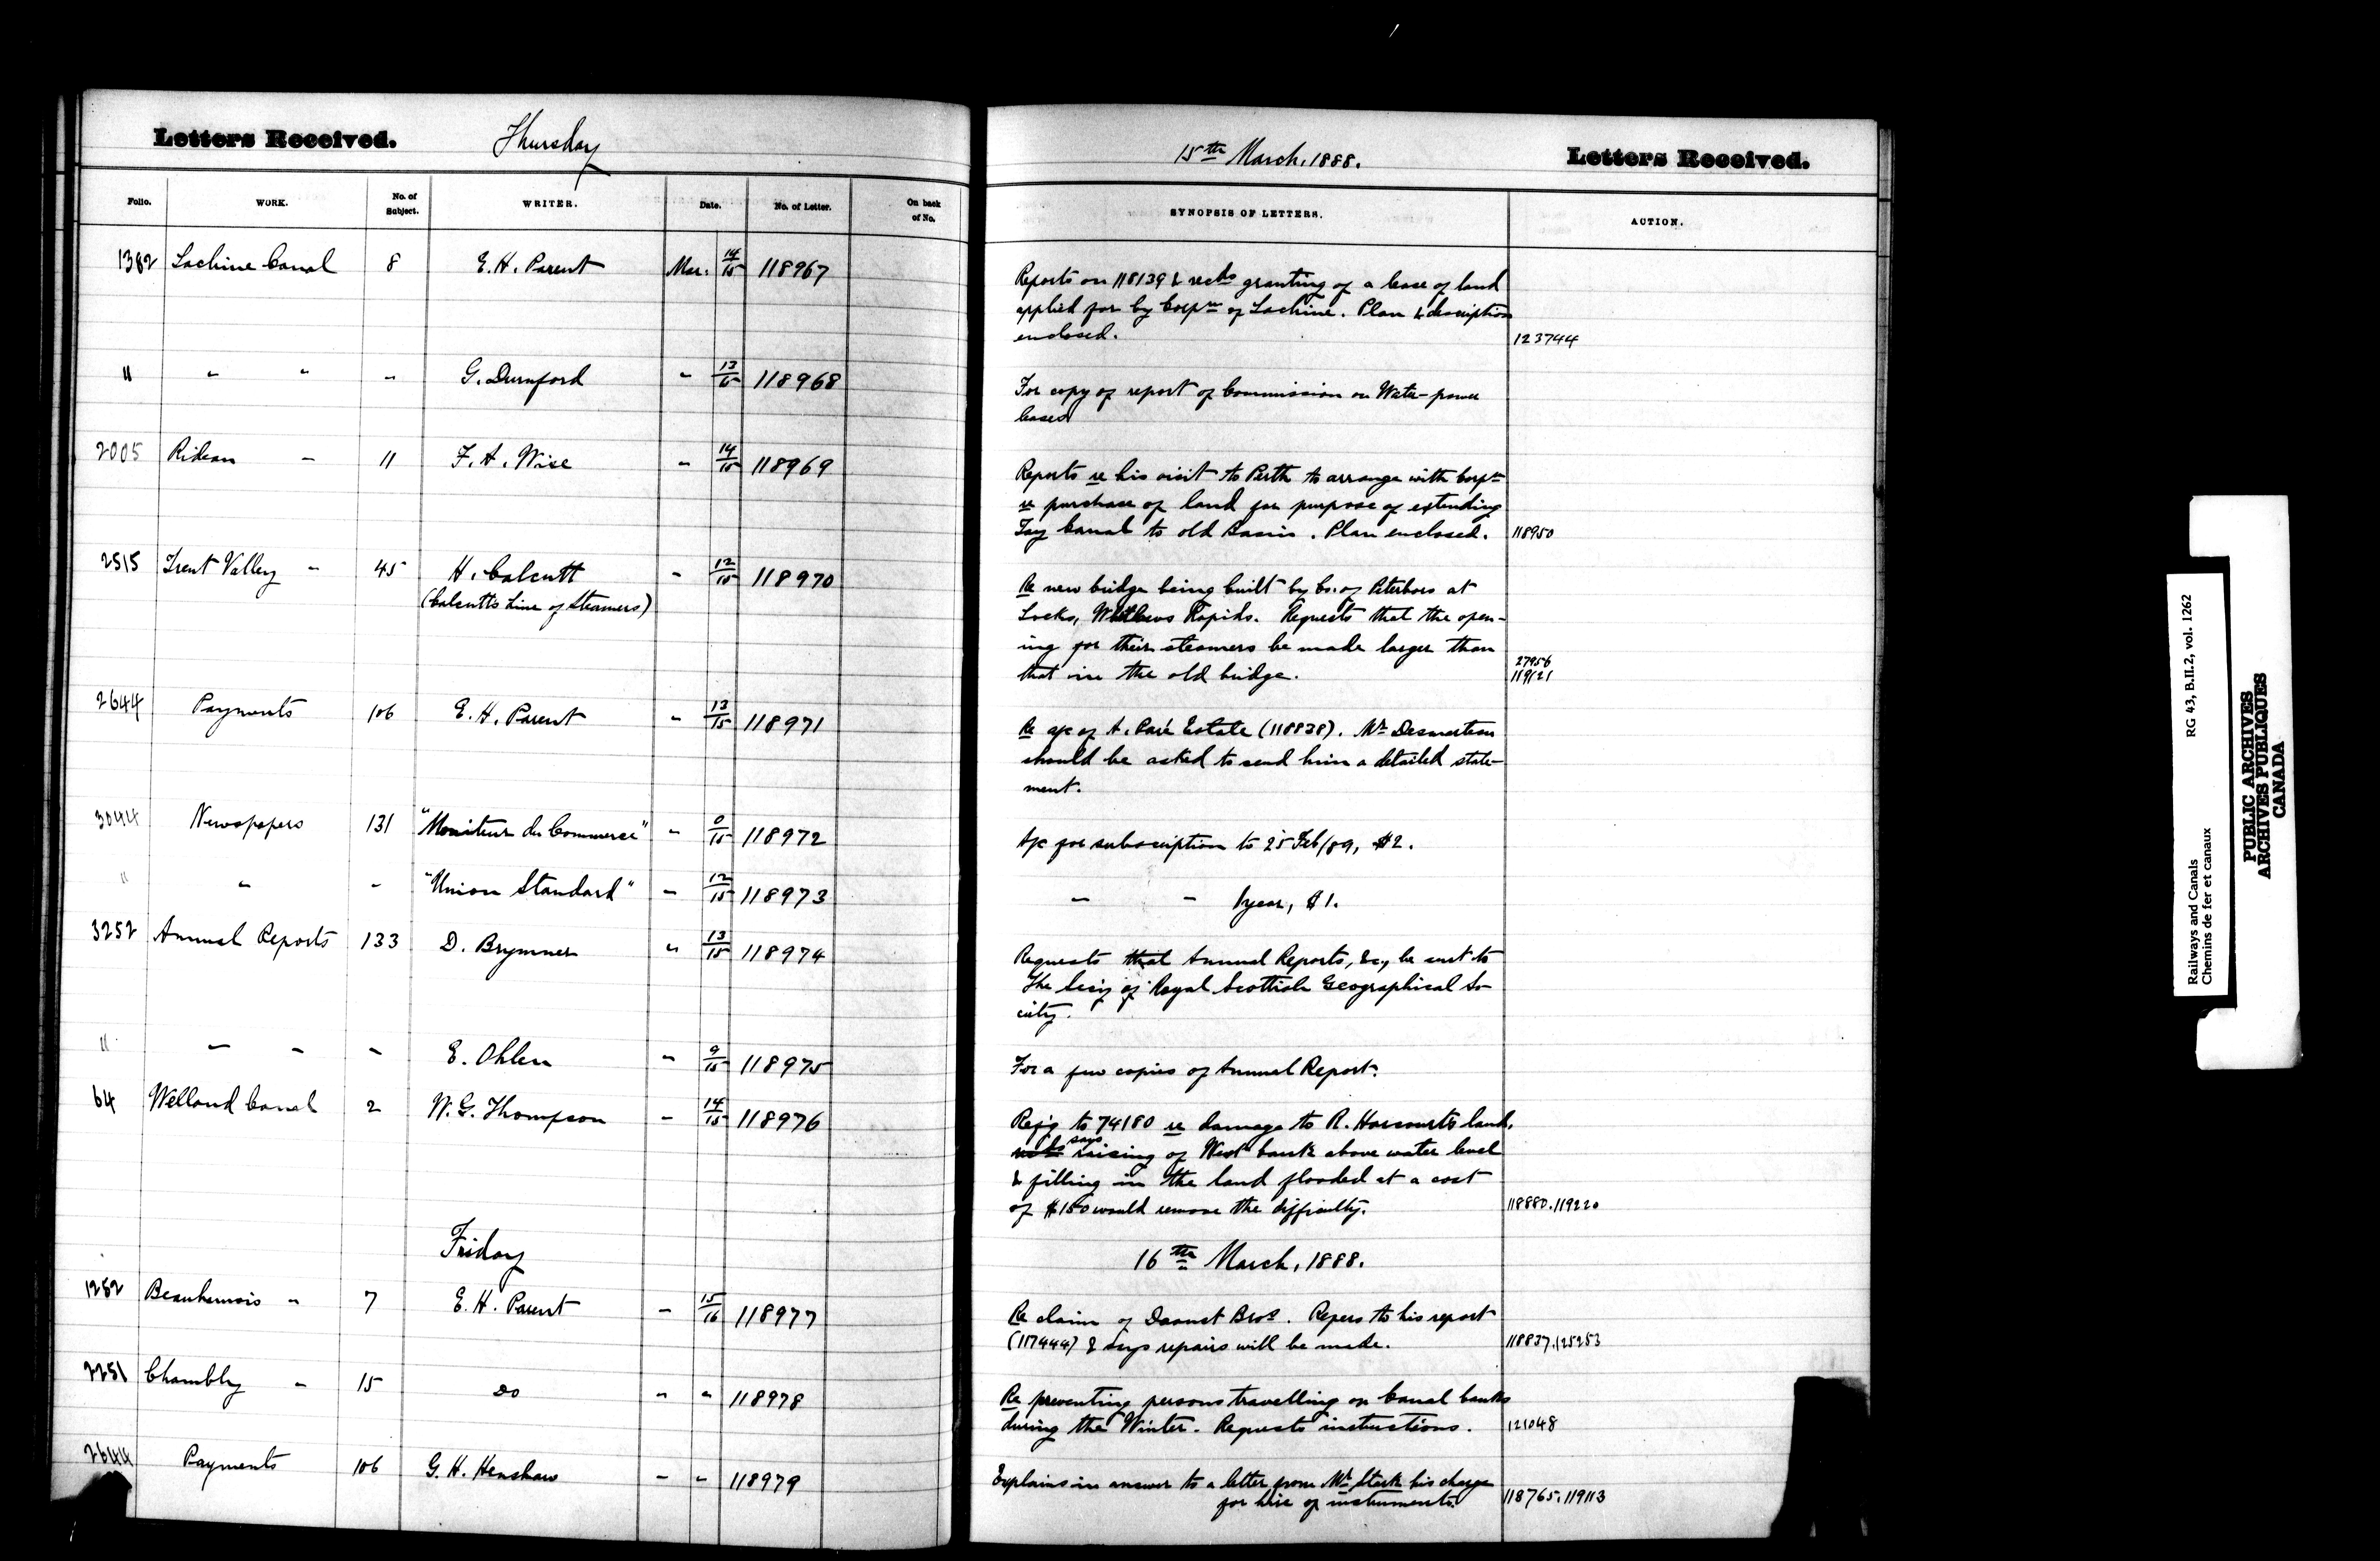 Letters Received. Thursday 15th March, 1888. Letters Received.
Folio. WORK. No. of Subject. WRITER. Date. No. of Letter. On back of No. SYNOPSIS OF LETTERS. ACTION.
1382 Lachine Canal 8 E. H. Parent Mar. 14/15 118967
Reports on 118139 & recds granting of a lease of land
applied for by Corpn of Lachine. Plan & description
enclosed. 123744
" " " " G. Durnford " 13/15 118968
For copy of report of Commission on Water-power
leased
2005 Rideau " 11 F. A. Wise " 14/15 118969
Reports re his visit to Perth to arrange with Corpn
re purchase of land for purpose of extending
Tay Canal to old Basin. Plan enclosed. 118950
2515 Trent Valley " 45 H. Calcutt " 12/15 118970
(Calcutt's Line of Steamers)
Re new bridge being built by Co. of Peterboro at
Locks, Rapids. Requests that the open-
ing for their steamers be made larger than
that in the old bridge. 27956
119121
2644 Payments 106 E. H. Parent " 13/15 118971
Re a/c of A. Paré Estate (118838). Mr
should be asked to send him a detailed state-
ment.
3044 Newspapers 131 "Moniteur du Commerce" " 0/15 118972
A/c for subscription to 25 Feb/89, $2.
" " " "Union Standard" " 12/15 118973
" " 1 year, $1.
3252 Annual Reports 133 D. Brymner " 13/15 118974
Requests that Annual Reports, &c, be sent to
the Secy of Royal Scottish Geographical So-
ciety.
" " " " E. Ohlen " 9/15 118975
For a few copies of Annual Report.
64 Welland Canal 2 W. G. Thompson " 14/15 118976
Refg to 74180 re damage to R. Harcourt's land,
says raising of West bank above water level
& filling in the land flooded at a cost
of $150 would remove the difficulty. 118880. 119220
Friday 16th March, 1888.
1252 Beauharnois " 7 E. H. Parent " 15/16 118977
Re claim of Daoust Bros. Refers to his report
(117444) & says repairs will be made. 118837. 125253
2251 Chambly " 15 Do " " 118978
Re preventing persons travelling on Canal banks
during the Winter. Requests instructions. 121048
2644 Payments 106 G. H. Henshaw " " 118979
Explains in answer to a letter from Mr Stark his charge
for hire of instruments. 118765. 119113
Railways and Canals RG 43, B.II.2, vol. 1262
Chemins de fer et canaux
PUBLIC ARCHIVES
ARCHIVES PUBLIQUES
CANADA